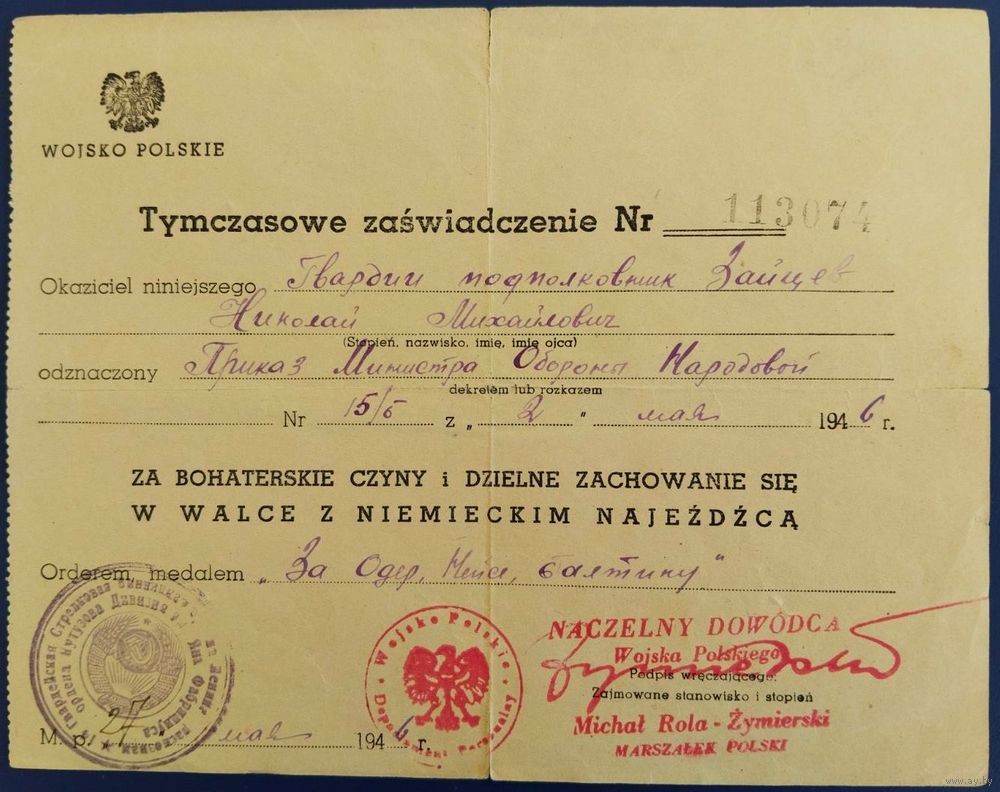 WOJSKO POLSKIE
Tymczasowe zaświadczenie Nr 113074
Okaziciel niniejszego Гвардии подполковник Зайцев
Николай Михайлович
(Stopień, nazwisko, imię, imię ojca)
odznaczony Приказ Министра Обороны Народовой
dekretem lub rozkazem
Nr 15/5 z „ 2 " мая 1946 r.
ZA BOHATERSKIE CZYNY i DZIELNE ZACHOWANIE SIĘ
W WALCE Z NIEMIECKIM NAJEŹDŹCĄ
Orderem, medalem „За Одер, Нейсе, Балтику"
Гвардейская Стрелковая
ордена Кутузова Дивизия
Яна Фабрициуса
Wojsko Polskie
Personalny
NACZELNY DOWÓDCA
Wojska Polskiego
Podpis wręczającego:
Zajmowane stanowisko i stopień
Michał Rola-Żymierski
MARSZAŁEK POLSKI
M. p. 27 мая 1946 r.
www.ay.by